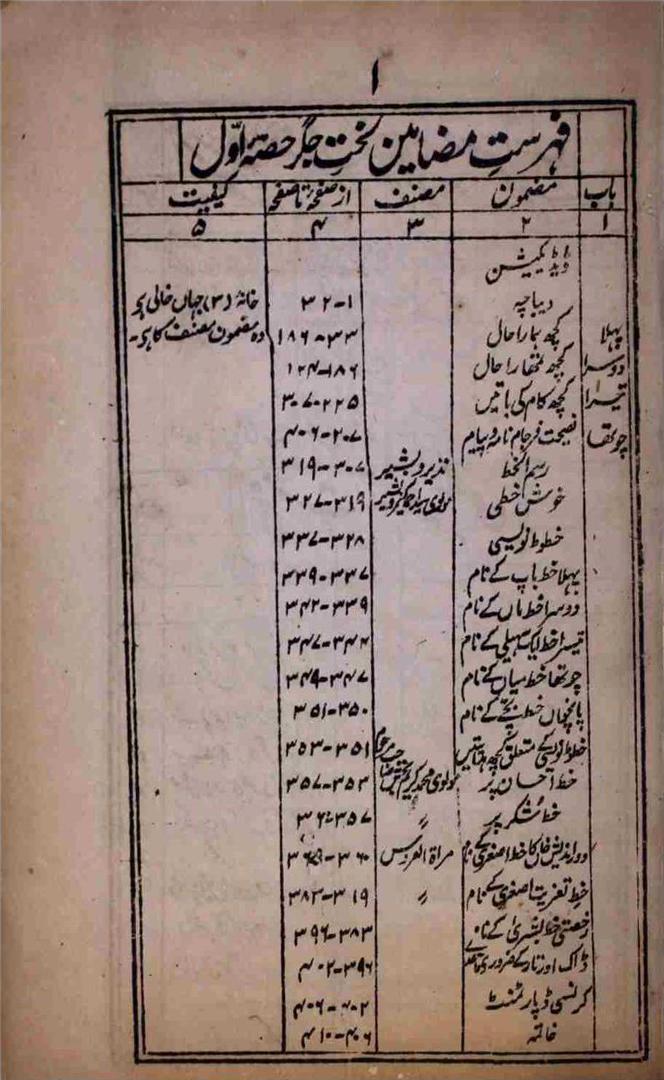 ۱
فہرستِ مضامین لختِ جگر حصّہ اوّل
باب مضمون مصنف از صفحہ تا صفحہ کیفیت
۱ ۲ ۳ ۴ ۵
ڈیڈیکیشن
دیباچہ ۱-۳۲ خانہ (۳) جہاں خالی ہو
پہلا کچھ ہمارا حال ۳۳-۱۸۶ وہ مضمون مصنف کا ہی۔
دوسرا کچھ تمھارا حال ۱۸۶-۱۲۴
تیسرا کچھ کام کی باتیں ۲۲۵-۳۰۷
چوتھا نصیحت فرجام نامہ و پیام ۲۰۷-۴۰۶
رسم الخط نذیر و بشیر ۳۰۷-۳۱۹
خوش خطی مولوی سید احمد و بشیر ۳۱۹-۳۲۷
خطوط نویسی ۳۲۸-۳۳۷
پہلا خط باپ کے نام ۳۳۷-۳۳۹
دوسرا خط ماں کے نام ۳۳۹-۳۴۲
تیسرا خط ایک سہیلی کے نام ۳۴۴-۳۴۷
چوتھا خط میاں کے نام ۳۴۷-۳۴۹
پانچواں خط بچّے کے نام ۳۵۰-۳۵۱
خطوط نویسی کے متعلق کچھ ۳۵۱-۳۵۳
خط احسان پر مولوی محمد کریم بخش ۳۵۳-۳۵۷
خط شکر پر 〃 ۳۵۷-۳۶
دور اندیش خاں کا خط اصغری کے نام مراۃ العروس ۳۶۰-۳۶۹
خط تعزیت اصغری کے نام 〃 ۳۱۹-۳۸۳
رخصتی خط بشریٰ کے نام ۳۸۳-۳۹۶
ڈاک اور تار کے ضروری قاعدے ۳۹۶-۴۰۲
کرنسی ڈپارٹمنٹ ۴۰۲-۴۰۶
خاتمہ ۴۰۶-۴۱۰